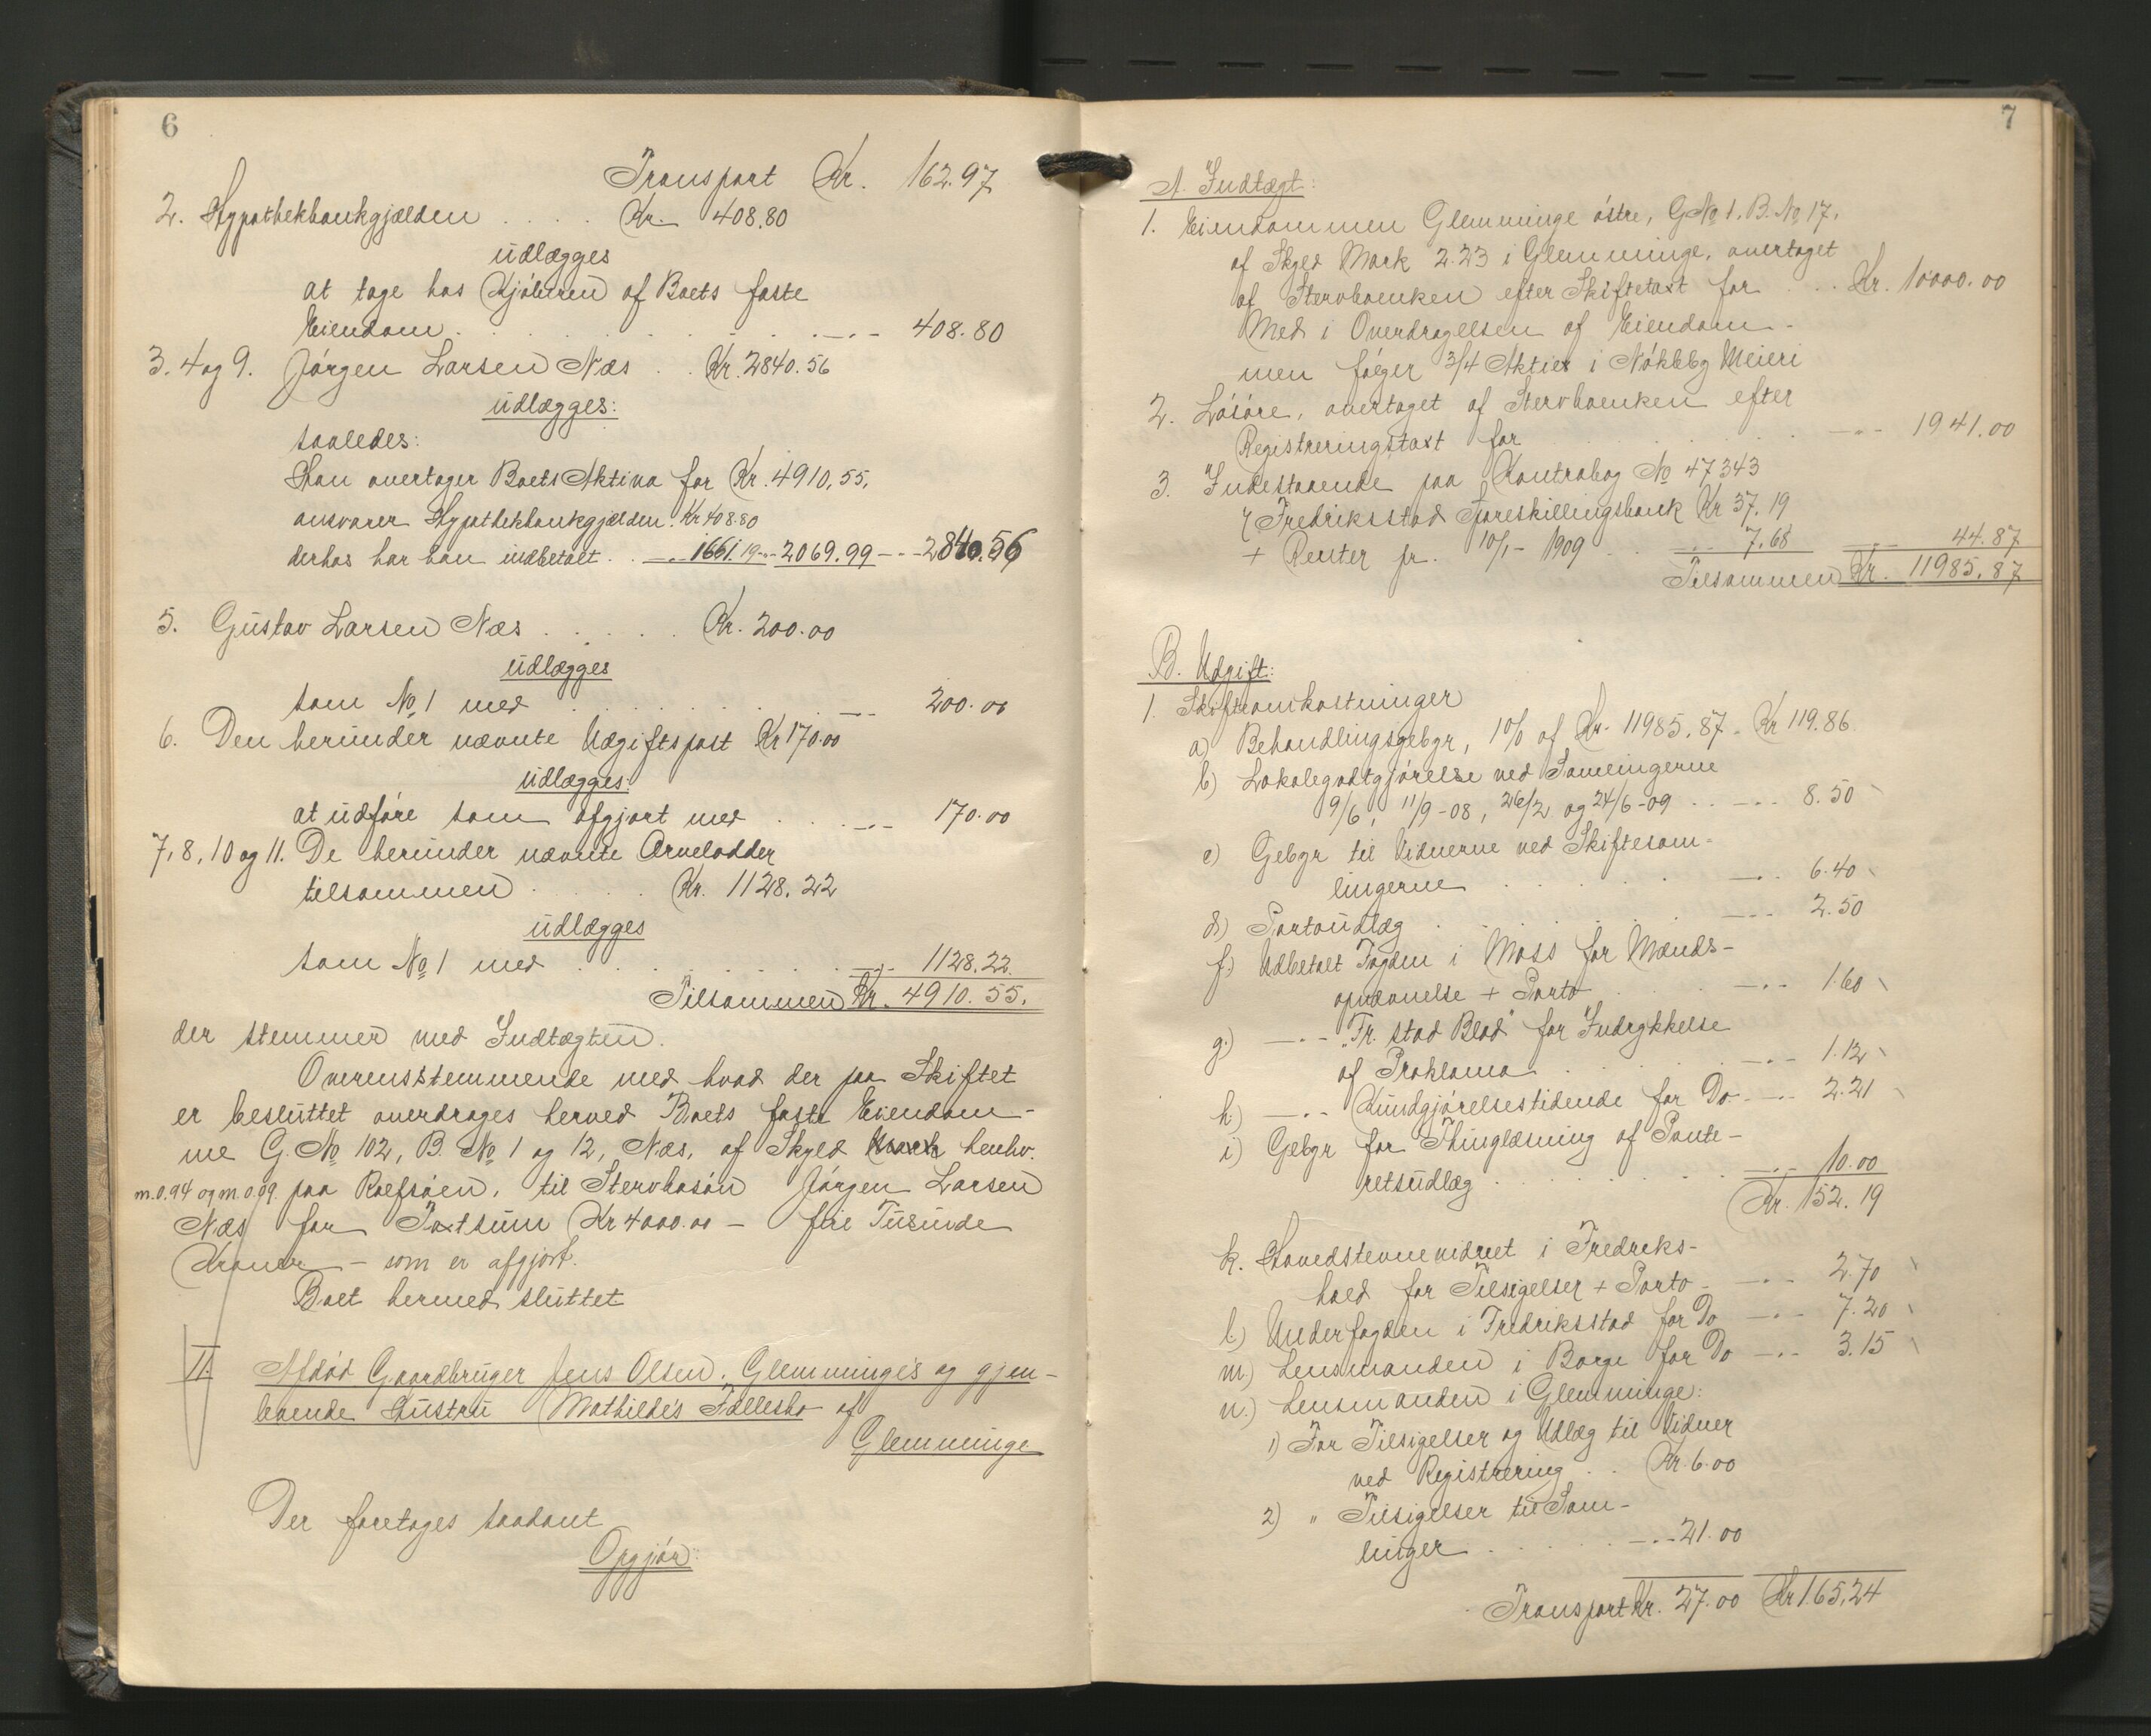 6
Transport Kr. 162.97
2. Hypothekbankgjælden . . . . Kr. 408.80
udlægges
at tage hos Kjøberen af Boets faste
Eiendom . . . . . . . . . —"— 408.80
3. 4 og 9. Jørgen Larsen Næs . . Kr. 2840.56
udlægges:
saaledes:
Han overtager Boets Aktiva for Kr. 4910,55,
ansvarer Hypothekbankgjælden: Kr 408.80
derhos har han indbetalt . . —"— 1661.19 —"— 2069.99 —"— 2840.56
5. Gustav Larsen Næs . . . . . Kr. 200.00
udlægges
som No 1 med . . . . . . . . —"— 200.00
6. Den herunder nævnte Udgiftspost Kr 170.00
udlægges:
at udføre som afgjort med . . . —"— 170.00
7, 8, 10 og 11. De herunder nævnte Arvelodder
tilsammen . . . . . Kr. 1128.22
udlægges
som No 1 med . . . . . . . . —"— 1128.22.
Tilsammen Kr. 4910.55.
der stemmer med Indtægten.
Overensstemmende med hvad der paa Skiftet
er besluttet overdrages herved Boets faste Eiendom-
me G. No 102, B. No 1 og 12, Næs, af Skyld Mark henhv.
m. 0.94 og m 0.09. paa Rolfsøen, til Stervbosøn Jørgen Larsen
Næs for Taxtsum Kr 4000.00 — fire Tusinde
Kroner — som er afgjort.
Boet hermed sluttet
II. Afdød Gaardbruger Jens Olsen. Glemminge's og gjen-
levende Hustru Mathilde's Fællesbo af
Glemminge
Der foretages saadant
Opgjør:
7
A. Indtægt:
1. Eiendommen Glemminge østre, G No 1. B. No 17,
af Skyld Mark 2.23 i Glemminge, overtaget
af Stervboenken efter Skiftetaxt for . . . Kr. 10000.00
Med i Overdragelsen af Eiendom-
men følger 3/4 Aktier i Nøkleby Meieri
2. Løsøre, overtaget af Stervboenken efter
Registreringstaxt for . . . . . . . —"— 1941.00
3. Indestaaende paa Kontrabog No 47343
i Fredriksstad Spareskillingsbank Kr 37.19
+ Renter pr. 10/1 - 1909 . . —"— 7.68 —"— 44.87
Tilsammen Kr. 11985.87
B. Udgift:
1. Skifteomkostninger
a) Behandlingsgebyr, 1 0/0 af Kr. 11985.87. Kr 119.86
b) Lokalegodtgjørelse ved Samlingerne
9/6, 11/9 - 08, 26/2 og 24/6 - 09 . . —"— 8.50
c) Gebyr til Vidnerne ved Skiftesam-
lingerne . . . . . . —"— 6.40
d) Portoudlæg . . . . . . —"— 2.50
f.) Udbetalt Fogden i Moss for Mænds-
opnævnelse + Porto . . . . —"— 1.60
g.) —"— „Fr. stad Blad" for Indrykkelse
af Proklama . . . . . . —"— 1.12
h.) —"— Kundgjørelsestidende for Do —"— 2.21
i) Gebyr for Thinglæsning af Pante-
retsudlæg . . . . . . . —"— 10.00
Kr. 152.19
k. Hovedstevnevidnet i Fredriks-
hald for Tilsigelser + Porto - —"— 2.70
l.) Underfogden i Fredriksstad for Do —"— 7.20
m.) Lensmanden i Borge for Do —"— 3.15
n.) Lensmanden i Glemminge:
1) For Tilsigelser og Udlæg til Vidner
ved Registrering . . Kr. 6.00
2) " Tilsigelser til Sam-
linger . . . . . . —"— 21.00
Transport Kr. 27.00 Kr 165.24